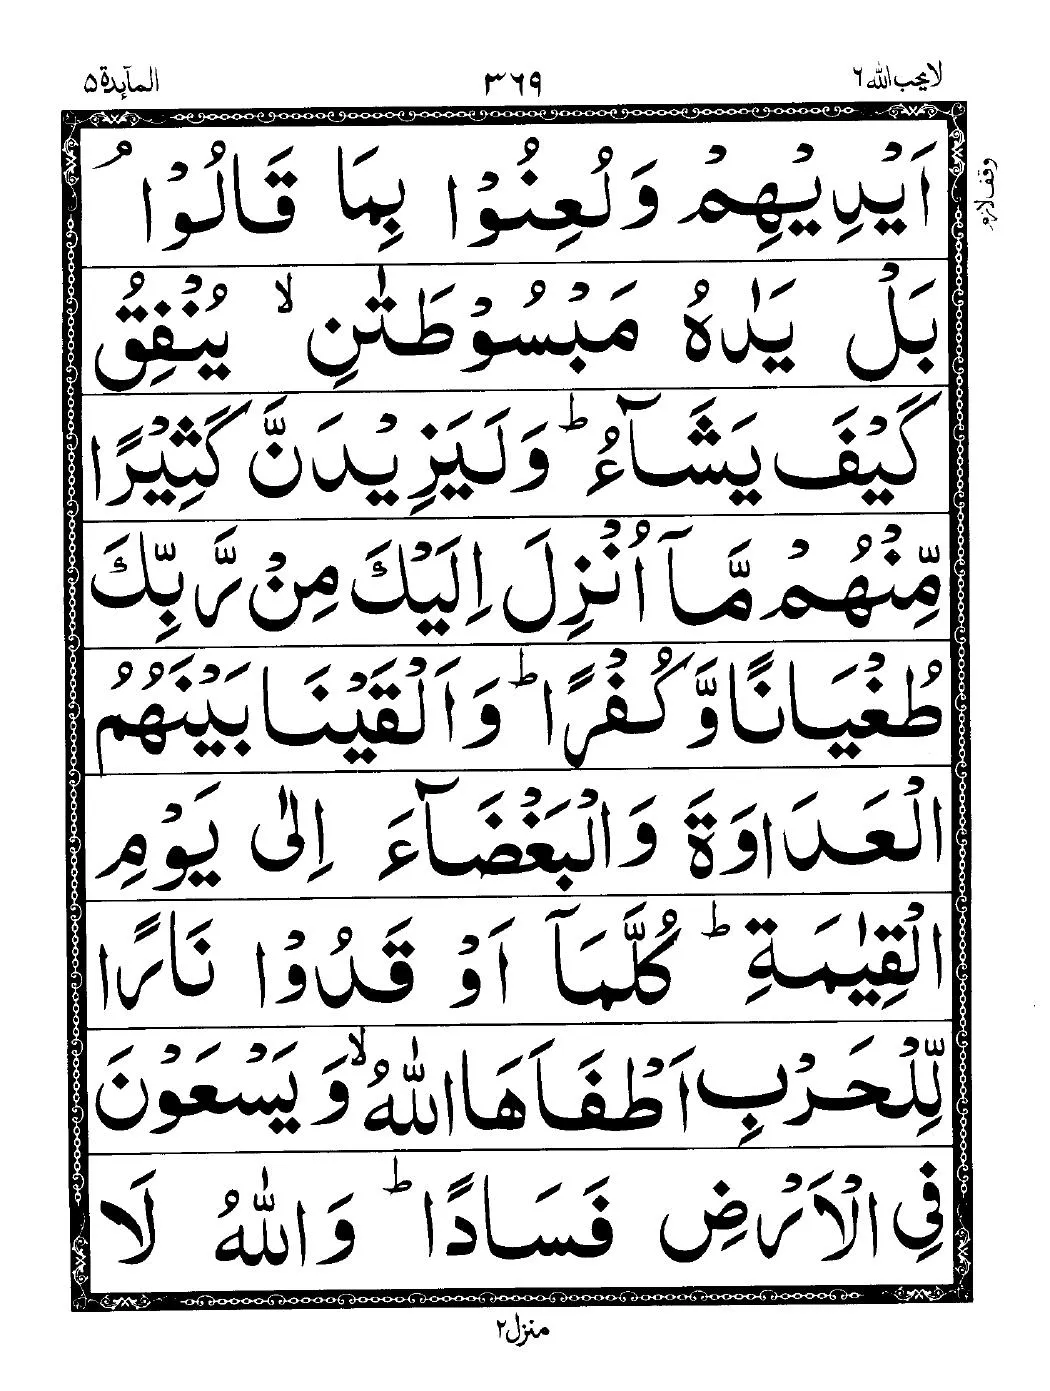 لا يحب الله ٦
٣٦٩
المآئدة ۵
وقف لازم
اَيْدِيْهِمْ وَلُعِنُوْا بِمَا قَالُوْا ۘ
بَلْ يَدٰهُ مَبْسُوْطَتٰنِ ۙ يُنْفِقُ
كَيْفَ يَشَآءُ ؕ وَلَيَزِيْدَنَّ كَثِيْرًا
مِّنْهُمْ مَّآ اُنْزِلَ اِلَيْكَ مِنْ رَّبِّكَ
طُغْيَانًا وَّكُفْرًا ؕ وَاَلْقَيْنَا بَيْنَهُمُ
الْعَدَاوَةَ وَالْبَغْضَآءَ اِلٰى يَوْمِ
الْقِيٰمَةِ ؕ كُلَّمَآ اَوْ قَدُوْا نَارًا
لِّلْحَرْبِ اَطْفَاَهَا اللّٰهُ ۙ وَيَسْعَوْنَ
فِي الْاَرْضِ فَسَادًا ؕ وَاللّٰهُ لَا
منزل ٢